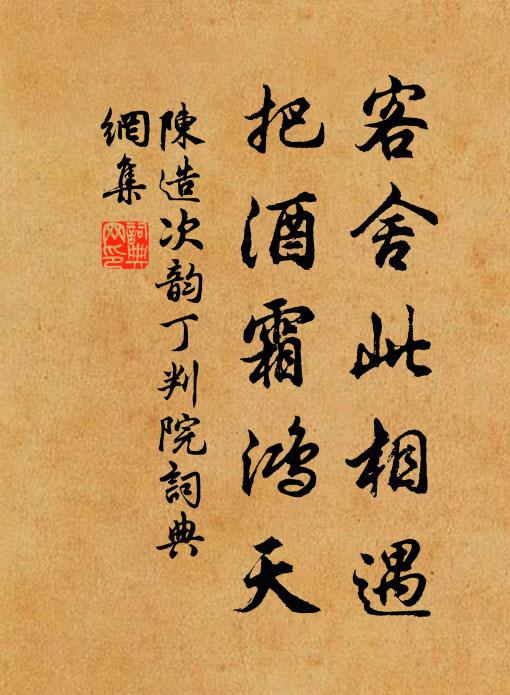 客舍此相遇
把酒霜鸿天
陳造次韵丁判院詞典
網集
詞典網印